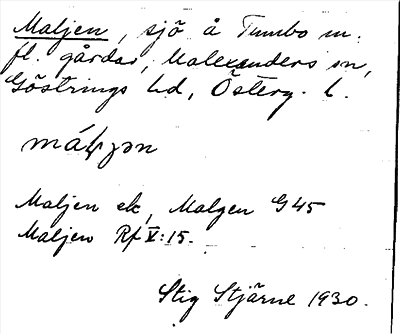 Maljen, sjö å Tumbo m.
fl. gårdar, Malexanders sn,
Göstrings hd, Österg. l.
Maljen ek, Malgen G45
Maljen Rf V:15.
Stig Stjärne 1930.